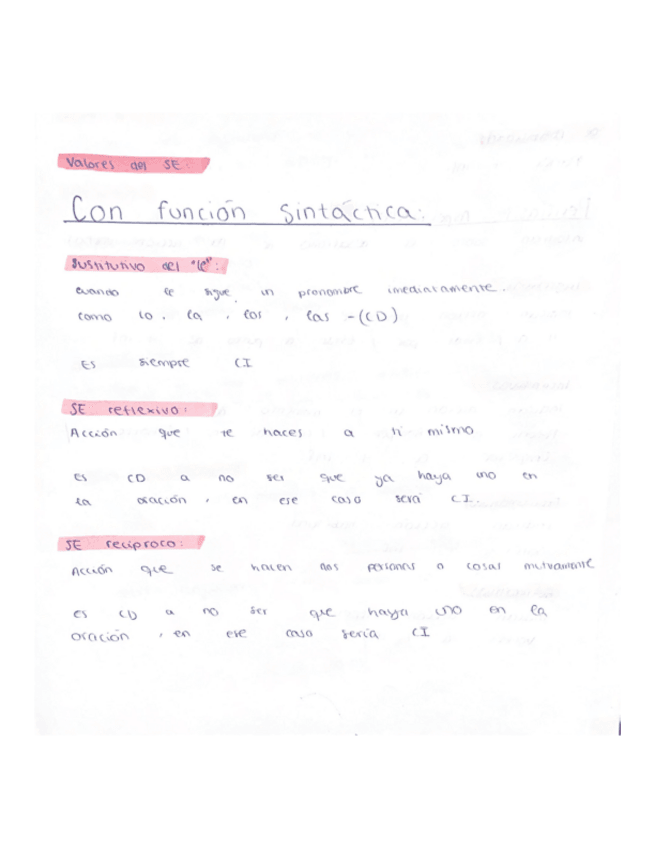 Valores del SE:
Con función sintáctica:
Sustitutivo del "le":
cuando le sigue un pronombre imediatamente.
como lo, la, los, las -(CD)
Es siempre CI
SE reflexivo:
Acción que te haces a ti mismo
Es CD a no ser que ya haya uno en
la oración, en ese caso será CI.
SE recíproco:
Acción que se hacen dos personas o cosas mutuamente
es CD a no ser que haya uno en la
oración, en ese caso sería CI